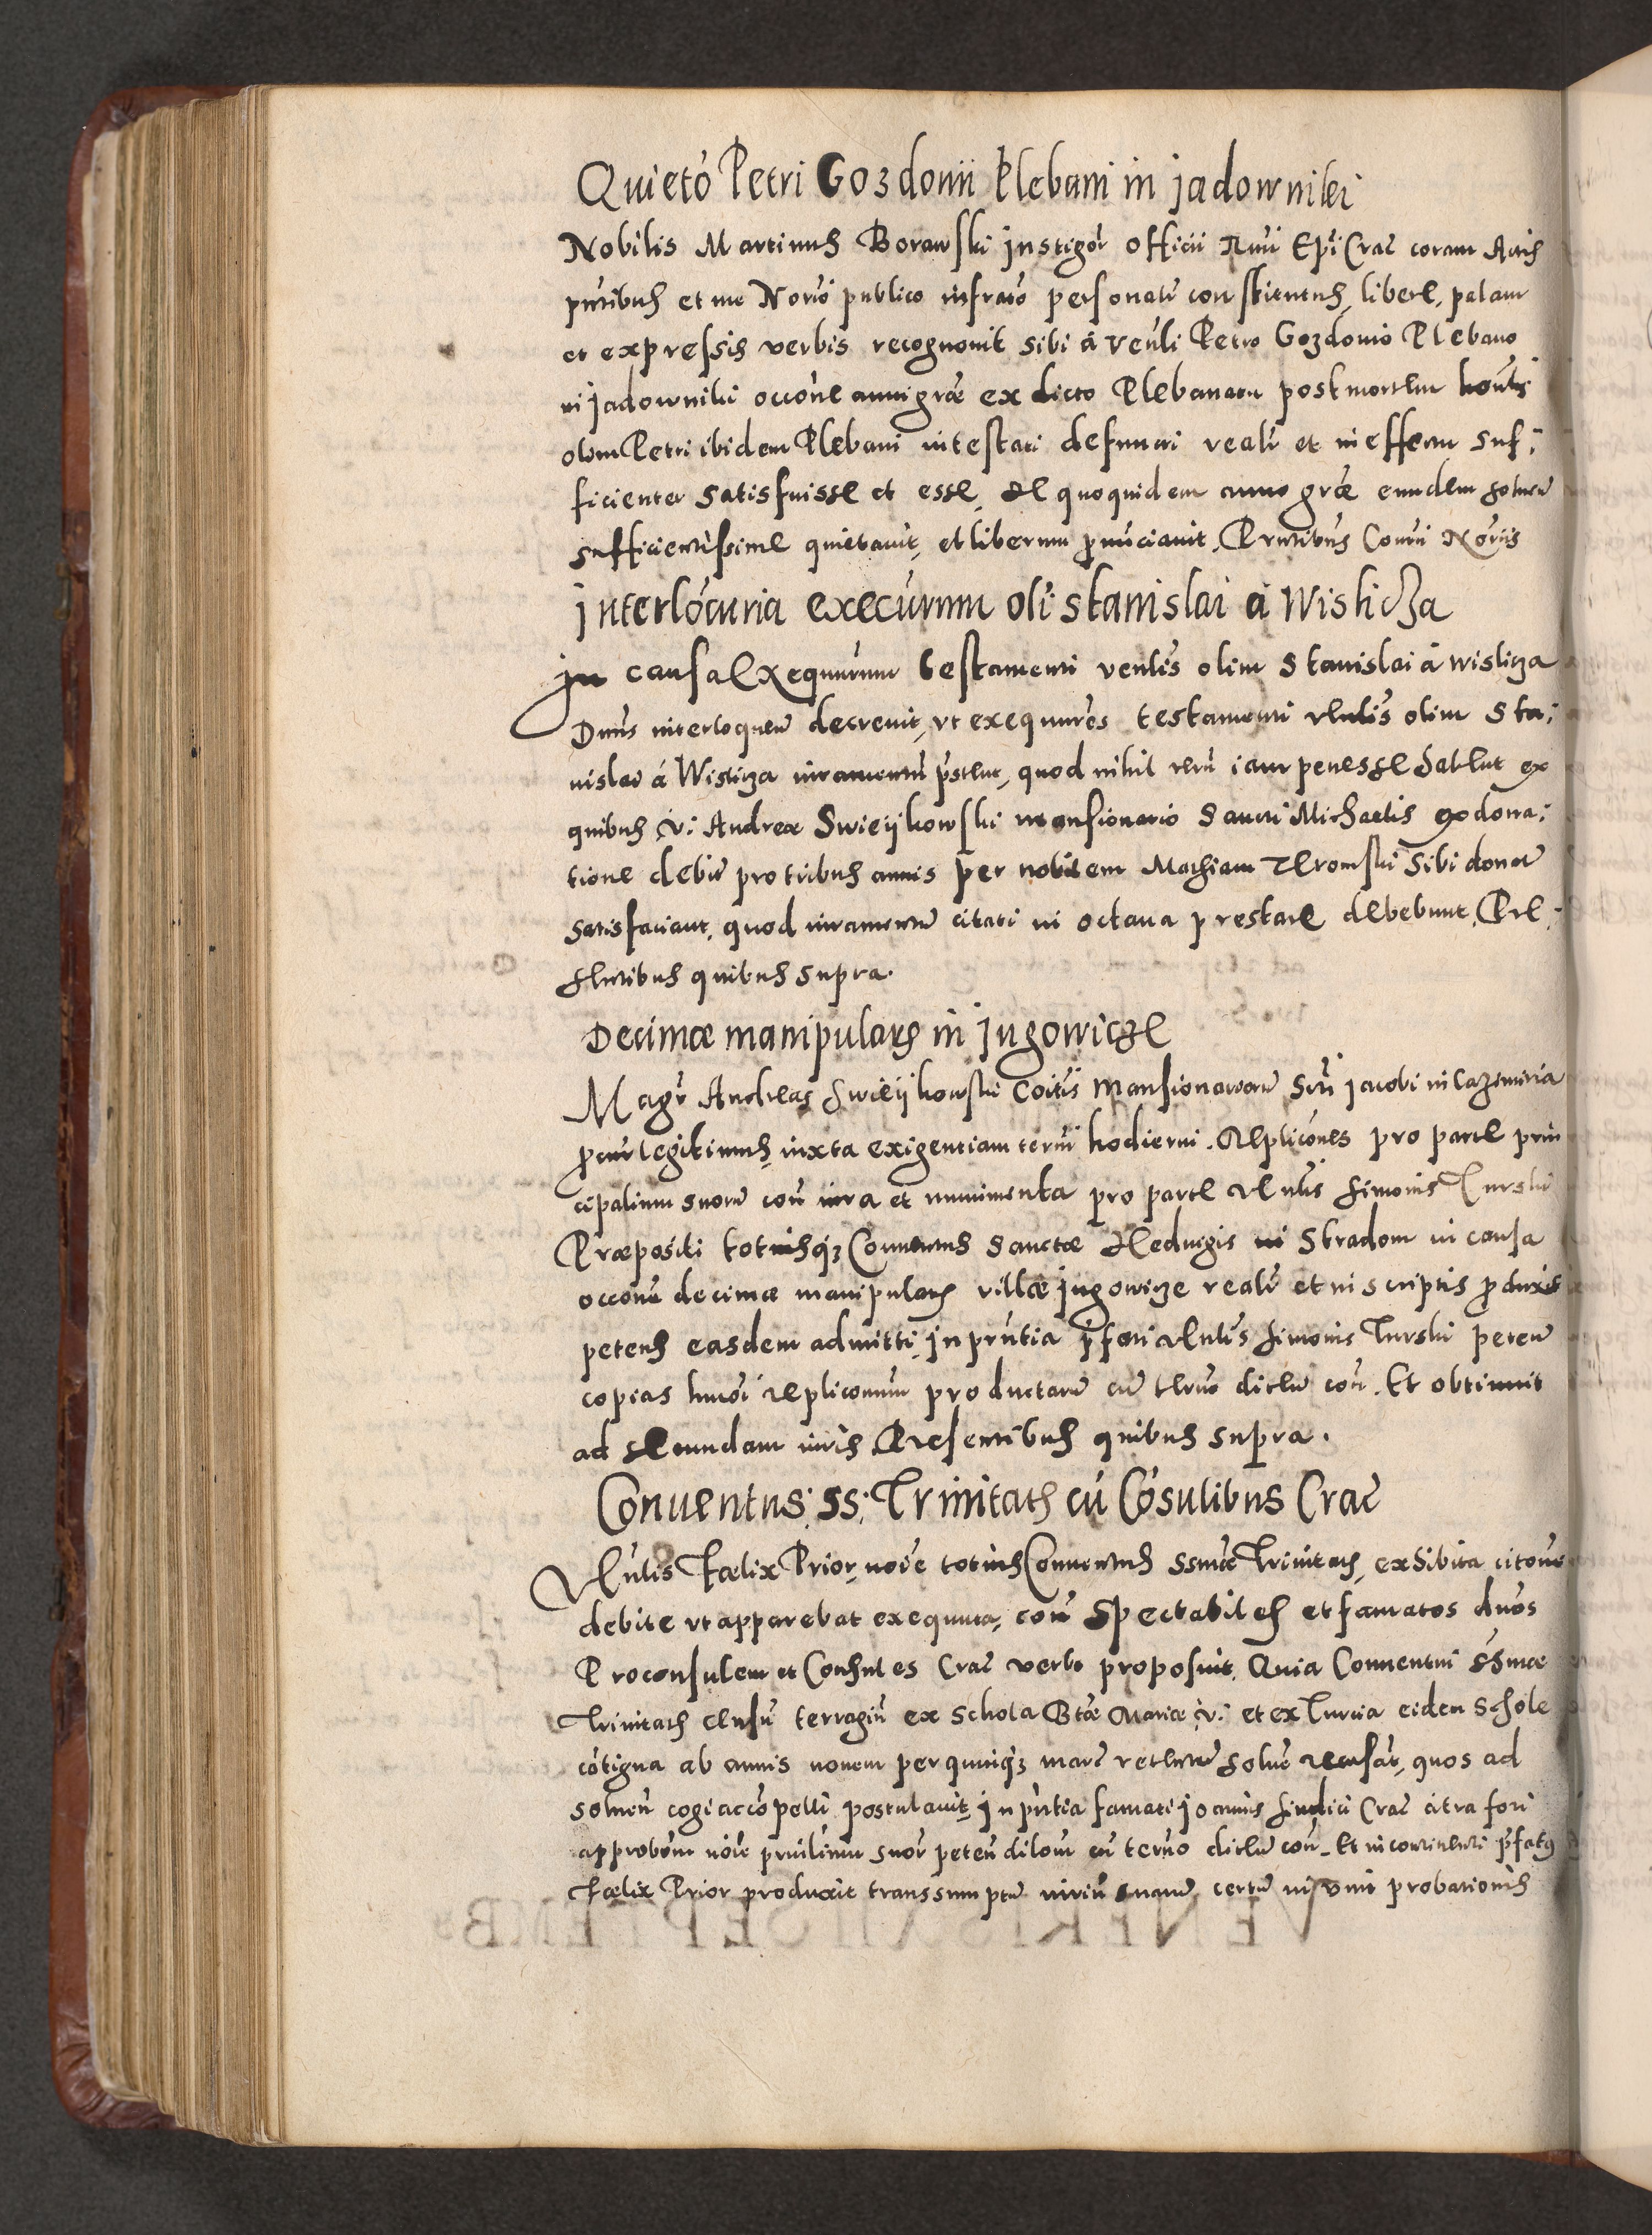 Quieto Petri Gozdonii Plebani in jadowniki
Nobilis Martinus Borawski jnstigor officii Rmi Epi Crac coram Actis
pntibus et me Norio publico infrato personatr constitutus, libere, palam
et expressis verbis recognovit sibi á venli Petro Gozdonio Plebano
in jadowniki occone anni grae ex dicto Plebanatu post mortem honlis
olim Petri ibidem Plebani intestati defuncti realr et in effectu suf:
ficienter satisfuisse et esse, de quoquidem anno grae eundem solutu
sufficientissime quietavit, et liberum pnunciavit, Pntibus Conui Noriis
jnterlocutia executorum oli stanislai á Wislicza
jn causa Exequutorum testamenti venlis olim Stanislai á wisliza
Dnus interloquendo decrevit, vt exequutores testamenti venlis olim Sta:
nislai á Wisliza iuramentum pstent, quod nihil reru iam penes se habent ex
quibus V: Andreae Swieijkowski mansionario Sancti Michaelis ex dona:
tione debitu pro tribus annis per nobilem Mathiam Zeromski sibi donatu
satisfaciant, quod iuramentu citati in octava prestare debebunt, Pre:
sentibus quibus supra.
Decimae manipularis in jugowicze
Magr Andreas Swieijkowski coitis Mansionariorum Scti jacobi in Cazimiria
pcur legitimus, iuxta exigentiam termi hodierni. Replicones pro parte prin
cipalium suoru con iura et munimenta pro parte venlis Simonis Turski
Praepositi totiusq3 Conventus Sanctae Hedvigis in Stradom in causa
occone decimae manipularis villae jugowicze realr et in scriptis pduxit
petens easdem admitti, jn pntia pfati venlis Simonis Turski peten
copias hmoi repliconum productaru cu termo dicen con. Et obtinuit
ad secundam iuris Presentibus quibus supra.
Conventus SS: Trinitatis cu Cosulibus Crac
Venlis Foelix Prior, noie totius Conventus ssmae Trinitatis, exhibita citone
debite vt apparebat exequuta, con spectabiles et famatos dnos
Proconsulem et Consules Crac verbo proposuit, Quia Conventui ssmae
Trinitatis censu terragiu ex Schola Btae Mariae V: et ex Curia eidem Schole
cotigua ab annis novem per quinq3 marc retentu solve recusat, quos ad
solven cogi ac copelli postulavit, jn pntia famati joannis Sindici Crac citra fori
approbom noie prnlium suor peten dilom cu termo dicen con. Et in continenti pfatus
Foelix Prior produxit transsumptu certu in vim probationis